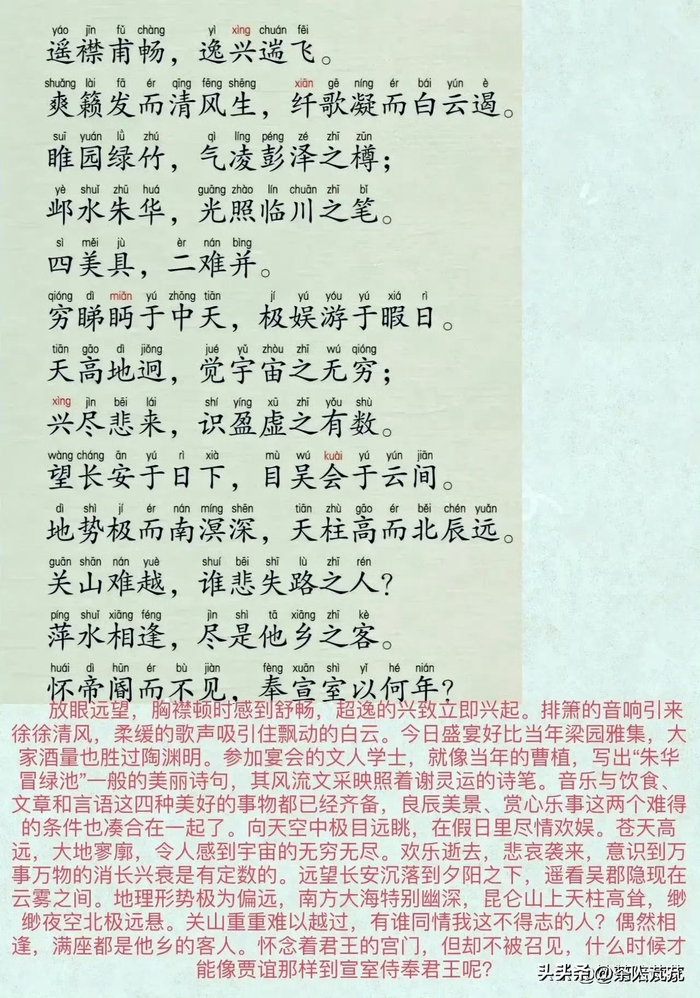 yáo jīn fǔ chàng yì xìng chuán fēi
遥襟甫畅，逸兴遄飞。
shuǎng lài fā ér qīng fēng shēng xiān gē níng ér bái yún è
爽籁发而清风生，纤歌凝而白云遏。
suī yuán lǜ zhú qì líng péng zé zhī zūn
睢园绿竹，气凌彭泽之樽；
yè shuǐ zhū huá guāng zhào lín chuān zhī bǐ
邺水朱华，光照临川之笔。
sì měi jù èr nán bìng
四美具，二难并。
qióng dì miǎn yú zhōng tiān jí yú yóu yú xiá rì
穷睇眄于中天，极娱游于暇日。
tiān gāo dì jiǒng jué yǔ zhòu zhī wú qióng
天高地迥，觉宇宙之无穷；
xìng jìn bēi lái shí yíng xū zhī yǒu shù
兴尽悲来，识盈虚之有数。
wàng cháng ān yú rì xià mù wú kuài yú yún jiān
望长安于日下，目吴会于云间。
dì shì jí ér nán míng shēn tiān zhù gāo ér běi chén yuǎn
地势极而南溟深，天柱高而北辰远。
guān shān nán yuè shuí bēi shī lù zhī rén
关山难越，谁悲失路之人？
píng shuǐ xiāng féng jìn shì tā xiāng zhī kè
萍水相逢，尽是他乡之客。
huái dì hūn ér bù jiàn fèng xuān shì yǐ hé nián
怀帝阍而不见，奉宣室以何年？
放眼远望，胸襟顿时感到舒畅，超逸的兴致立即兴起。排箫的音响引来
徐徐清风，柔缓的歌声吸引住飘动的白云。今日盛宴好比当年梁园雅集，大
家酒量也胜过陶渊明。参加宴会的文人学士，就像当年的曹植，写出“朱华
冒绿池”一般的美丽诗句，其风流文采映照着谢灵运的诗笔。音乐与饮食、
文章和言语这四种美好的事物都已经齐备，良辰美景、赏心乐事这两个难得
的条件也凑合在一起了。向天空中极目远眺，在假日里尽情欢娱。苍天高
远，大地寥廓，令人感到宇宙的无穷无尽。欢乐逝去，悲哀袭来，意识到万
事万物的消长兴衰是有定数的。远望长安沉落到夕阳之下，遥看吴郡隐现在
云雾之间。地理形势极为偏远，南方大海特别幽深，昆仑山上天柱高耸，缈
缈夜空北极远悬。关山重重难以越过，有谁同情我这不得志的人？偶然相
逢，满座都是他乡的客人。怀念着君王的宫门，但却不被召见，什么时候才
能像贾谊那样到宣室侍奉君王呢？
头条 @